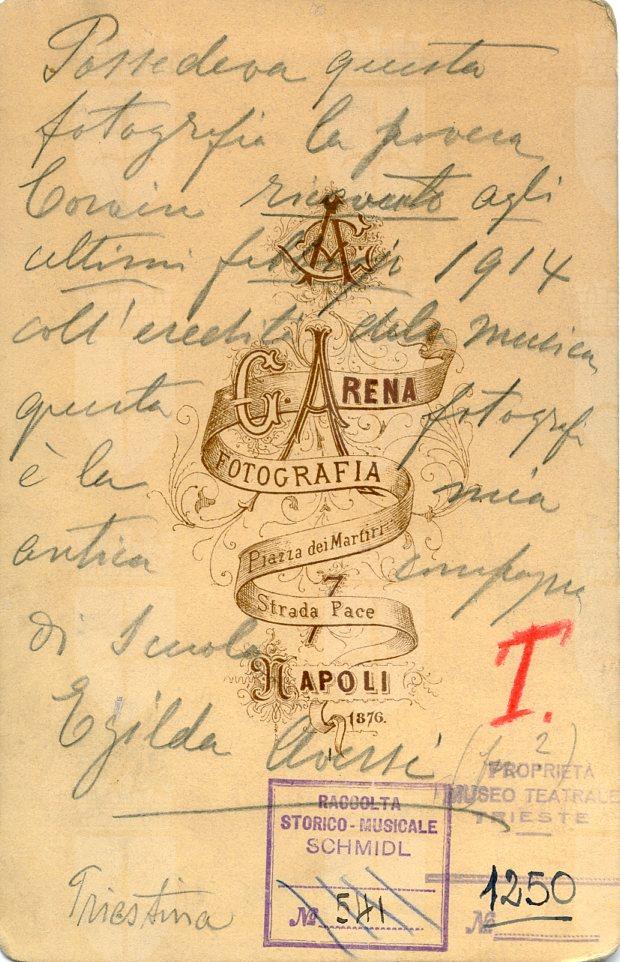 Possedeva questa
fotografia la povera
ricevuto agli
ultimi febbrai 1914
coll'eredità della musica
questa fotografi
è la mia
antica compagna
di scuola
Egilda
GA
G. ARENA
FOTOGRAFIA
Piazza dei Martiri
7
Strada Pace
7
NAPOLI
1876.
I.
2)
PROPRIETÀ
MUSEO TEATRALE
TRIESTE
RACCOLTA
STORICO-MUSICALE
SCHMIDL
No 541
No 1250
Triestina